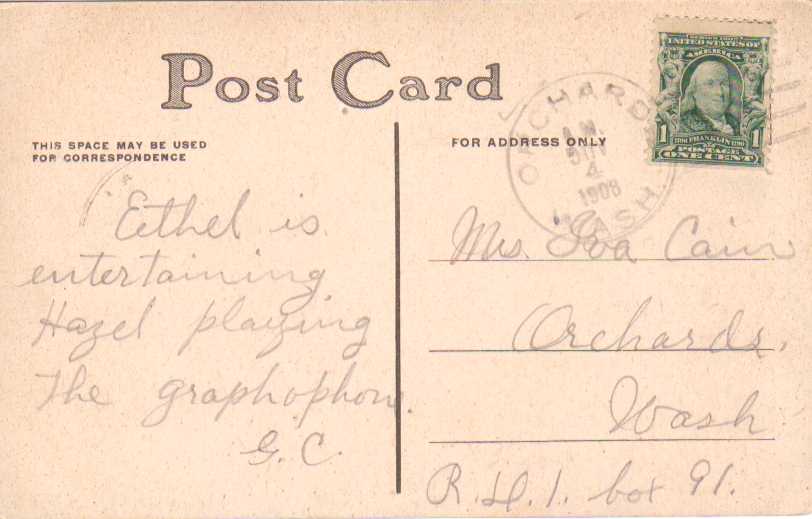 Post Card
THIS SPACE MAY BE USED
FOR CORRESPONDENCE
FOR ADDRESS ONLY
UNITED STATES OF
AMERICA
1 FRANKLIN 1
POSTAGE
ONE CENT
ORCHARDS
4
1908
WASH.
Eethel is
entertaining
Hazel playing
The graphophone.
G. C.
Mrs. Iva Cain
Orchards,
Wash
R. D. 1. box 91.